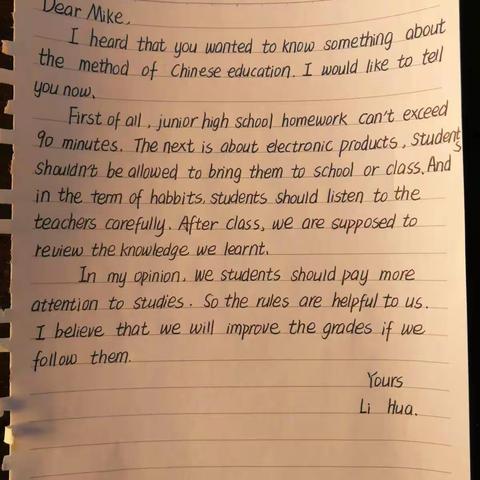 Dear Mike,
I heard that you wanted to know something about
the method of Chinese education. I would like to tell
you now.
First of all, junior high school homework can't exceed
90 minutes. The next is about electronic products, Students
shouldn't be allowed to bring them to school or class. And
in the term of habbits, students should listen to the
teachers carefully. After class, we are supposed to
review the knowledge we learnt.
In my opinion, we students should pay more
attention to studies. So the rules are helpful to us.
I believe that we will improve the grades if we
follow them.
Yours
Li Hua.